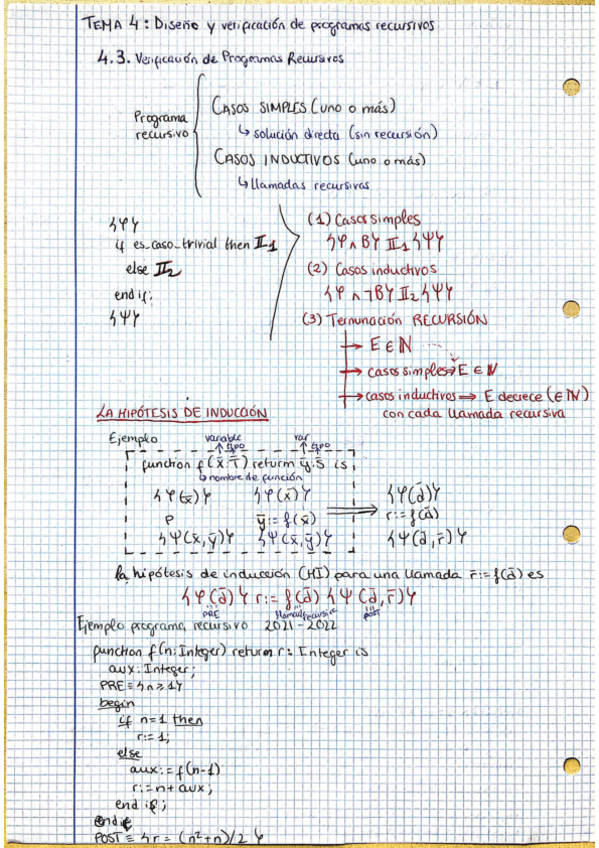 TEMA 4: Diseño y verificación de programas recursivos
4.3. Verificación de Programas Recursivos
Programa recursivo
CASOS SIMPLES (uno o más)
↳ solución directa (sin recursión)
CASOS INDUCTIVOS (uno o más)
↳ llamadas recursivas
{φ}
if es_caso_trivial then II1
else II2
end if;
{ψ}
(1) Casos simples
{φ ∧ B} II1 {ψ}
(2) Casos inductivos
{φ ∧ ¬B} II2 {ψ}
(3) Terminación RECURSIÓN
→ E ∈ ℕ
→ casos simples ⇒ E ∈ ℕ
→ casos inductivos ⇒ E decrece (∈ ℕ)
con cada llamada recursiva
LA HIPÓTESIS DE INDUCCIÓN
Ejemplo
variable ↑ ↑ tipo var ↑ ↑ tipo
function f(x̄:T̄) return ȳ:S̄ is
↳ nombre de función
{φ(x̄)} {φ(x̄)} {φ(ā)}
P ȳ := f(x̄) ⇒ r̄:=f(ā)
{ψ(x̄,ȳ)} {ψ(x̄,ȳ)} {ψ(ā,r̄)}
la hipótesis de inducción (HI) para una llamada r̄:=f(ā) es
{φ(ā)} r:=f(ā) {ψ(ā,r̄)}
PRE llamada recursiva post
Ejemplo programa recursivo 2021-2022
function f(n:Integer) return r: Integer is
aux: Integer;
PRE ≡ {n ≥ 1}
begin
if n=1 then
r:=1;
else
aux:=f(n-1)
r:=n+aux;
end if;
end
POST ≡ {r = (n²+n)/2}